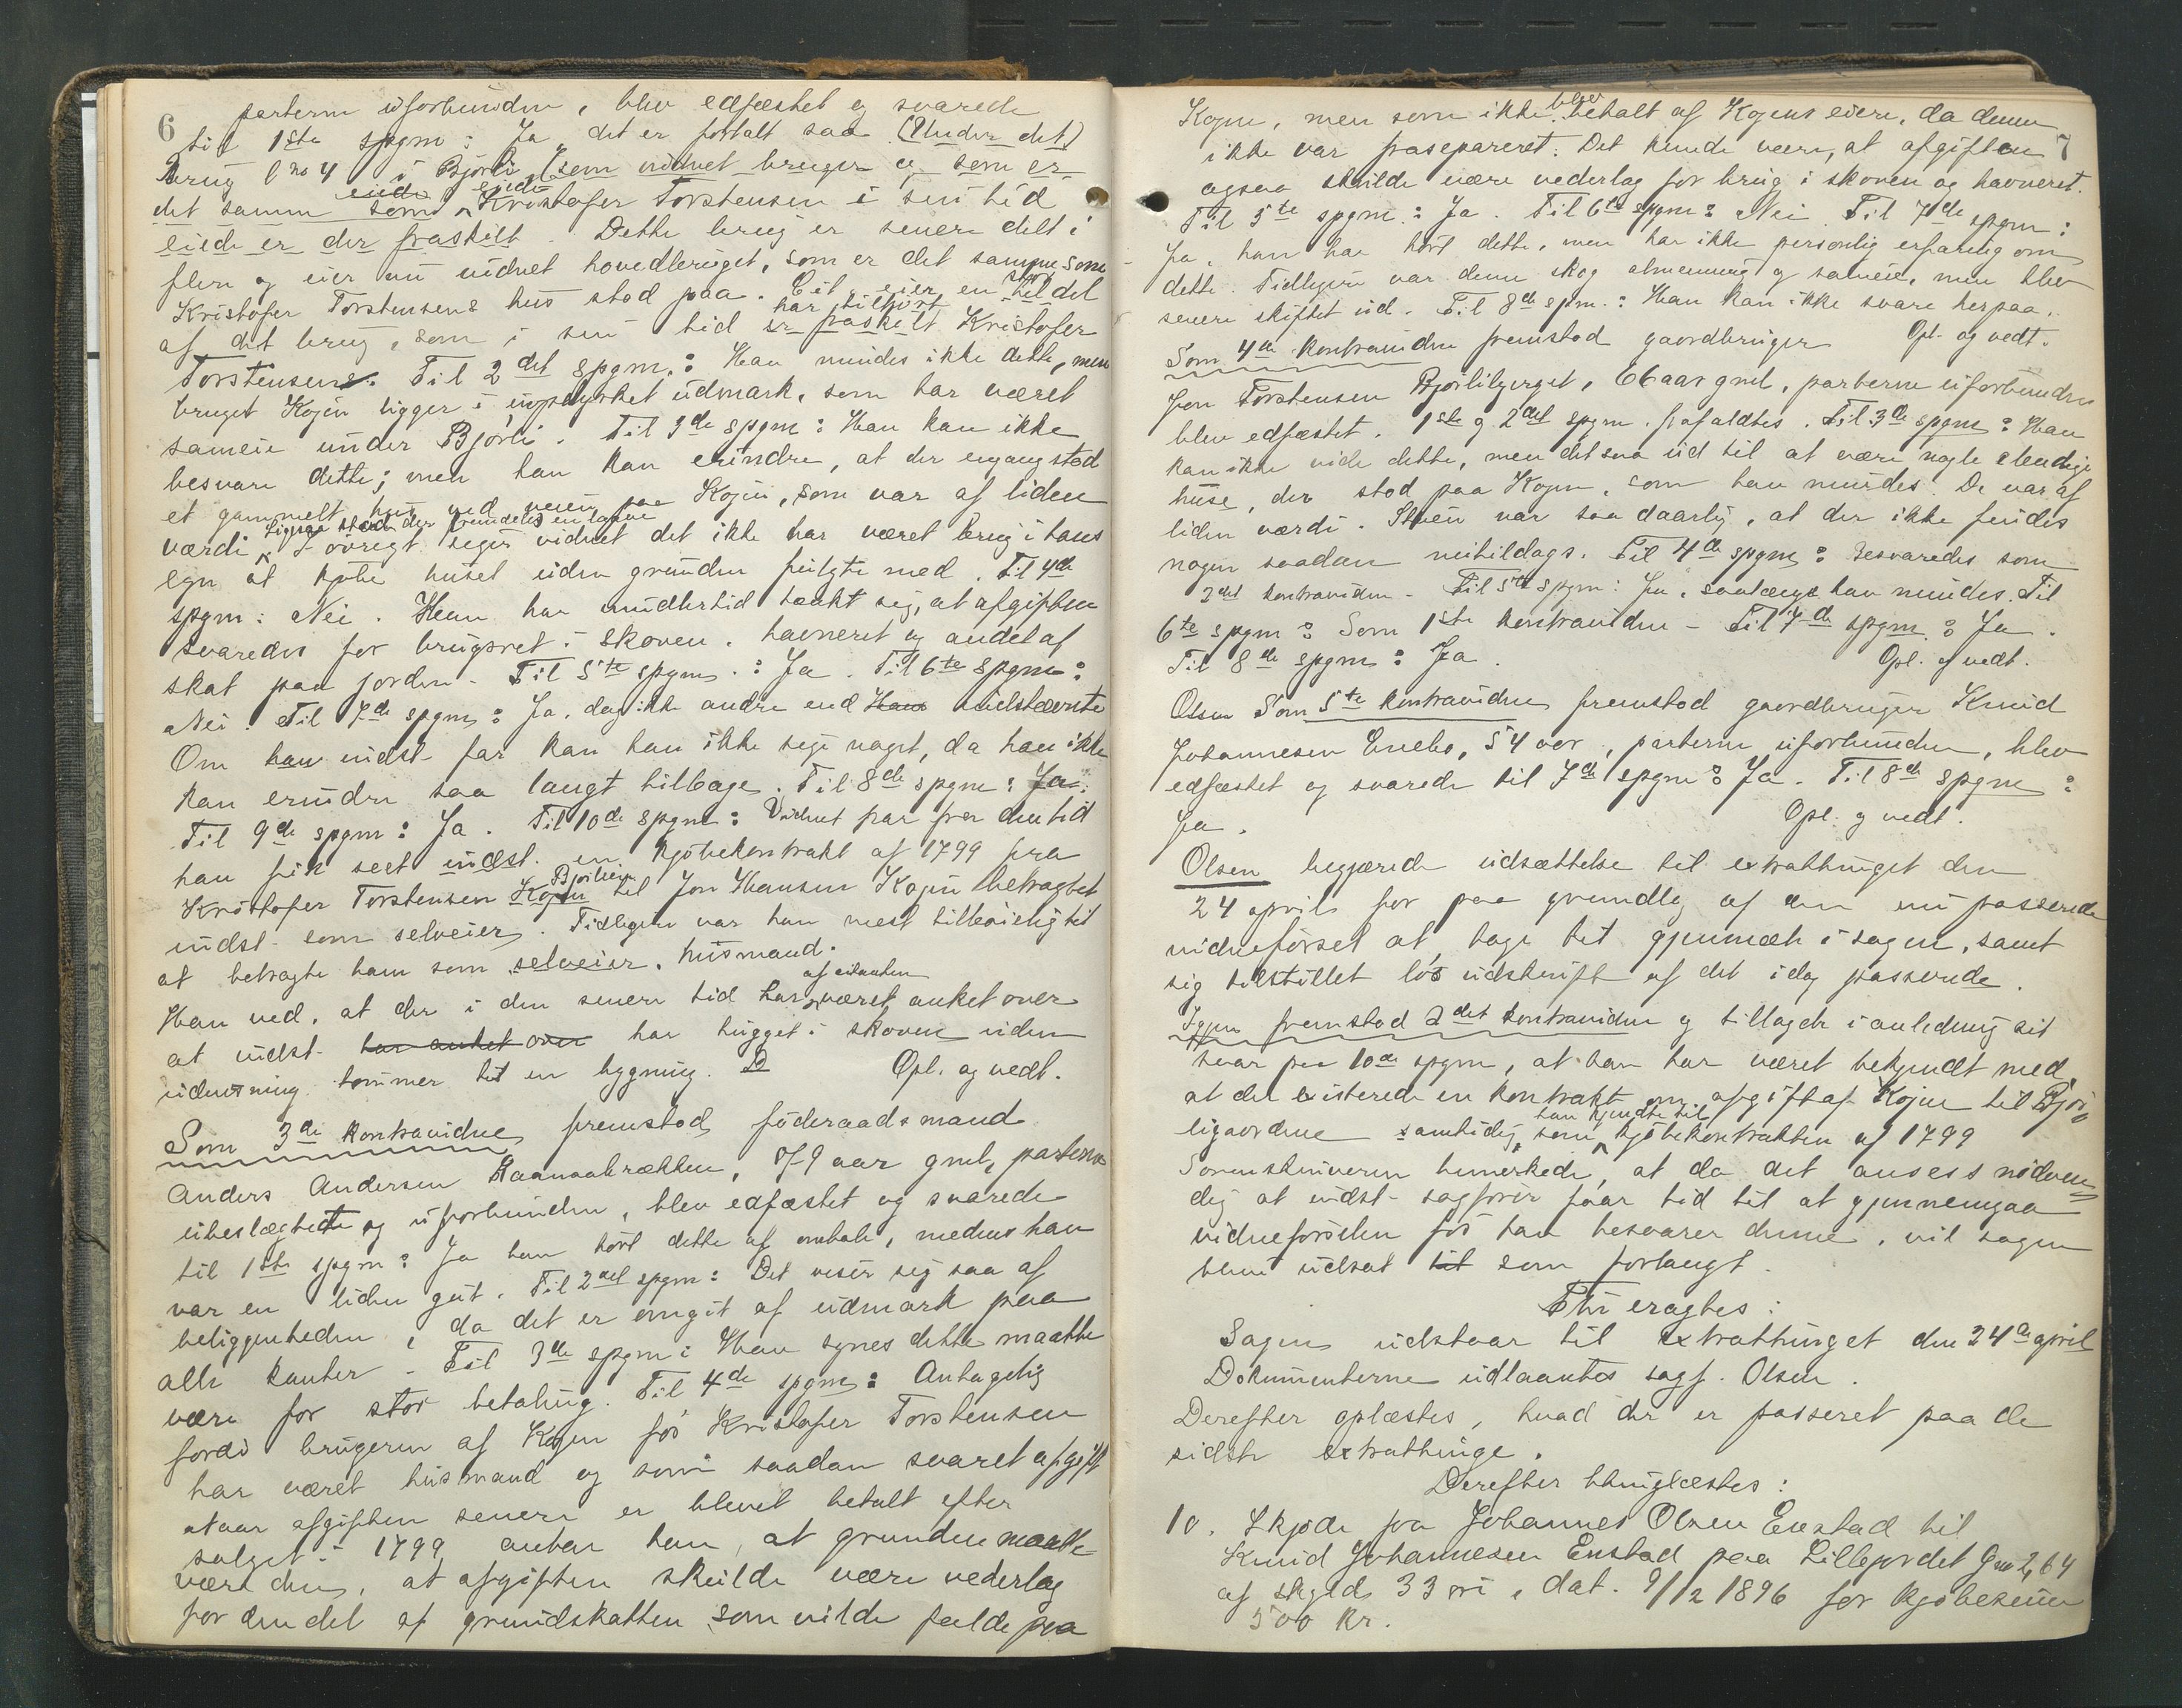 6
parterne uforbunden, blev edfæstet og svarede
til 1ste spgm: Ja, det er fortalt saa. (Under det)
Brug lno 4 i Bjorli (som vidnet bruger og som er
det samme som eiede Kristofer Torstensen i sin tid
eiede er der fraskilt. Dette brug er senere delt i
flere og eier nu vidnet hovedbruget, som er det samme som
Kristofer Torstensens hus stod paa. Cit. eier en stor del
af det brug, som i sin tid har tilhørt er fraskilt Kristofer
Torstensens. Til 2det spgm.: Han mindes ikke dette, men
bruget Kojen ligger i uopdyrket udmark, som har været
sameie under Bjorli. Til 3de spgm: Han kan ikke
besvare dette; men han kan erindre, at der engang stod
et gammelt hus ved veien paa Kojen, som var af liden
værdi. Ligesaa stod der fremdeles en
I øvrigt siger vidnet det ikke har været brug i hans
egn at kjøbe huset uden grunden fulgte med. Til 4de
spgm: Nei. Han har imidlertid tænkt sig, at afgiften
svaredes for brugsret i skoven, havneret og andel af
skat paa jorden. Til 5te spgm.: Ja. Til 6te spgm:
Nei. Til 7de spgm: Ja, dog ikke andre end Han indstævnte
Om han indst. far kan han ikke sige noget, da han ikke
kan erindre saa langt tilbage. Til 8de spgm: Ja.
Til 9de spgm: Ja. Til 10de spgm: Vidnet har fra den tid
han fik seet indst. en kjøbekontrakt af 1799 fra
Kristofer Torstensen Kojen Bjorlien til Jon Hansen Kojen betragtet
indst. som selveier. Tidligere var han mest tilbøielig til
at betragte ham som selveier. husmand.
Han ved, at der i den senere tid har af citanten været anket over
at indst. har anket over har hugget i skoven uden
udvisning tømmer til en bygning. D Opl. og vedt.
Som 3de kontravidne fremstod føderaadsmand
Anders Andersen Raanaabrækken, 79 aar gml, parterne
ubeslægtet og uforbunden, blev edfæstet og svarede
til 1ste spgm: Ja han hørt dette af omtale, medens han
var en liden gut. Til 2det spgm: Det viser sig saa af
beliggenheden, da det er omgit af udmark paa
alle kanter. Til 3de spgm: Han synes dette maatte
være for stor betaling. Til 4de spgm: Antagelig
fordi brugeren af Kojen før Kristofer Torstensen
har været husmand og som saadan svaret afgift
Naar afgiften senere er blevet betalt efter
salget i 1799 antar han, at grunden maatte
være den, at afgiften skulde være vederlag
for den del af grundskatten som vilde falde paa
7
Kojen, men som ikke blev betalt af Kojens eiere, da denne
ikke var frasepareret. Det kunde være, at afgiften
ogsaa skulde være vederlag for brug i skoven og havneret.
Til 5te spgm.: Ja. Til 6te spgm: Nei. Til 7de spgm:
Ja, han har hørt dette, men har ikke personlig erfaring om
dette. Tidligere var denne skog almenning og sameie, men blev
senere skiftet ud. Til 8de spm.: Han kan ikke svare herpaa.
Opl. og vedt.
Som 4de kontravidne fremstod gaardbruger
Jon Torstensen Bjorlibjerget, 66 aar gml, parterne uforbunden
blev edfæstet. 1ste og 2det spgm. frafaldtes. Til 3de spgm: Han
kan ikke vide dette, men det saa ud til at være nogle elendige
huse, der stod paa Kojen, som han mindes. De var af
liden værdi. Stuen var saa daarlig, at der ikke findes
nogen saadan nutildags. Til 4de spgm: Besvaredes som
2det kontravidne. Til 5te spgm: Ja, saalænge han mindes. Til
6te spgm: Som 1ste kontravidne - Til 7de spgm: Ja.
Til 8de spgm: Ja. Opl. og vedt.
Olsen Som 5te kontravidne fremstod gaardbruger Knud
Johannesen Enebo, 54 aar, parterne uforbunden, blev
edfæstet og svarede til 7de spgm: Ja. Til 8de spgm:
Ja. Opl. og vedt.
Olsen begjærede udsættelse til extrathinget den
24 april for paa grundlag af den nu passerede
vidneførsel at tage til gjenmæle i sagen, samt
sig tilstillet løs udskrift af det idag passerede.
Igjen fremstod 2det kontravidne og tillagde i anledning sit
svar paa 10de spgm, at han har været bekjendt med,
at det existerede en kontrakt om afgift af Kojen til Bjor-
ligaardene samtidig som han kjendte til kjøbekontrakten af 1799
Sorenskriveren bemerkede, at da det ansees nødven-
dig at indst. sagfører faar tid til at gjennemgaa
vidneførselen før han besvarer denne, vil sagen
blive udsat til som forlangt.
Thi eragtes:
Sagen udstaar til extrathinget den 24de april
Dokumenterne udlaantes sagf. Olsen.
Derefter oplæstes, hvad der er passeret paa de
sidste extrathinge.
Derefter thinglæstes:
10. Skjøde fra Johannes Olsen Enstad til
Knud Johannesen Enstad paa Lillejordet Gno 2, 64
af skyld 33 øre, dat. 9/12 1896 for kjøbesum
500 kr.